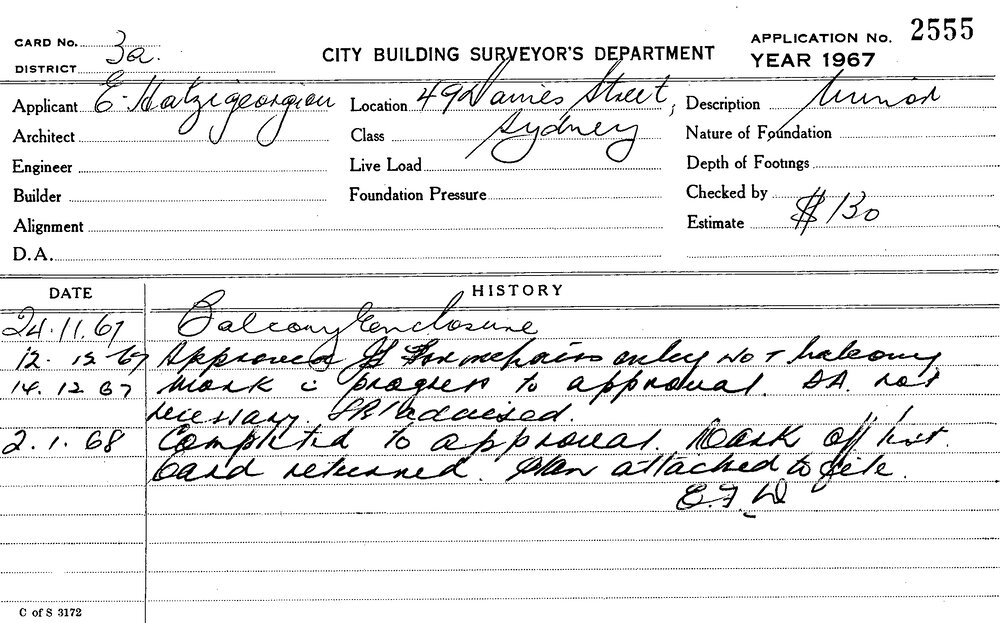 CARD No.
DISTRICT 3a.
CITY BUILDING SURVEYOR'S DEPARTMENT
APPLICATION No. 2555
YEAR 1967
Applicant E. Hatzigeorgiou
Location 49 Harris Street, Sydney
Description Minor
Architect
Class
Nature of Foundation
Engineer
Live Load
Depth of Footings
Builder
Foundation Pressure
Checked by
Alignment
Estimate $130
D.A.
DATE HISTORY
24.11.67 Balcony Enclosure
12.12.67 Approved For repairs only not balcony
14.12.67 Work in progress to approval. DA. not
necessary. advised.
2.1.68 Completed to approval. Mark off list.
Card returned. Plan attached to file.
E.F.W
C of S 3172